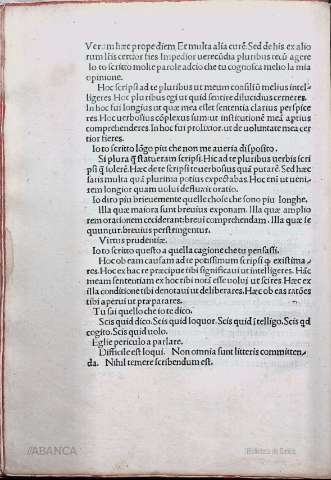 Verum hæc prope diem Et multa alia curē. Sed de his ex alio
rum lr̄is certior fies Impedior uerecūdia pluribus tecū agere
Io to scritto molte parole acio che tu cognosca melio la mia
opinione.
Hoc scripsi ad te pluribus ut meum consiliū melius intel⸗
ligeres. Hoc pluribus egi ut quid sentire dilucidius cerneres.
In hoc fui longius ut quæ mea esset sententia clarius perspice
res Hoc uerbosius cōplexus sum ut institutionē meā aptius
comprehenderes. In hoc fui prolixior. ut de uoluntate mea cer
tior fieres.
Io to scritto lōgo piu che non me aueria disposito.
Si plura q̄ statueram scripsi. Hic ad te pluribus uerbis scri
psi q̄ solerē. Hæc de te scripsi te uerbosius quā putarē. Sed hæc
satis multa quā plurima potius expectabas. Hoc eni ut ueni⸗
rem longior quam uolui defluxit oratio.
Io diro piu brieuemente quelle chose che sono piu longhe.
Illa quæ maiora sunt breuius exponam. Illa quæ amplio
rem orationem deciderant breui comprehendam. Illa quæ se
quuntur. breuius perstringentur.
Virtus prudentiæ.
Io to scritto questo a quella cagione che tu pensassi.
Hoc ob eam causam ad te potissimum scripsi q̄ existima⸗
res. Hoc ex hac re præcipue tibi significaui ut intelligeres. Hāc
meam sententiam ex hoc tibi notā esse uolui ut scires Hæc ex
illa conditione tibi denotaui ut deliberares. Hæc ob eas ratōes
tibi aperui ut præpatares.
Tu sai quello che io te dico.
Scis quid dico. Scis quid loquor. Scis quid ītelligo. Scis qd
cogito. Scis quid uolo.
Eglie periculo a parlare.
Difficile est loqui. Non omnia sunt litteris committen⸗
da. Nihil temere scribendum est.
//ABANCA
Biblioteca de Galicia